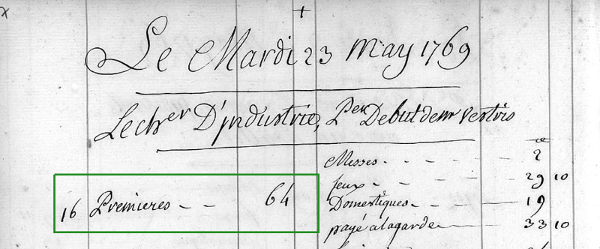 Le Mardi 23 may 1769
Lecher D'jndustrie, Per Debut de mr vestris
Messes - - - 2
feux - - - 29 10
16 Premieres - - 64
Domestiques - 19
payé a la garde - 33 10